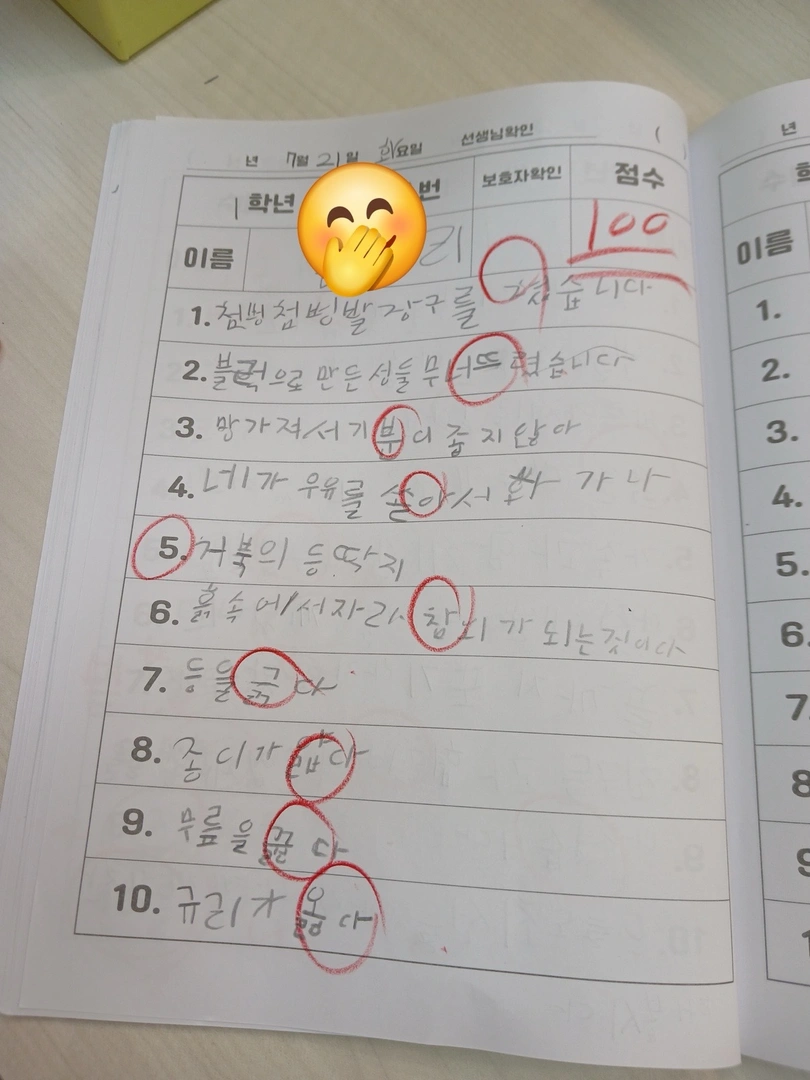 년 7월 21일 화요일 선생님확인 (
1학년 번 보호자확인 점수
이름 리 100
1. 첨벙첨벙 발장구를 쳤습니다
2. 블럭으로 만든 성들 무너뜨렸습니다
3. 망가져서 기분이 좋지 않아
4. 네가 우유를 쏟아서 화가 나
5. 거북의 등딱지
6. 흙 속에서 자라 참외가 되는것이다
7. 등을 긁다
8. 종이가 얇다
9. 무릎을 꿇다
10. 규리가 다
년
이름
1.
2.
3.
4.
5.
6.
7.
8